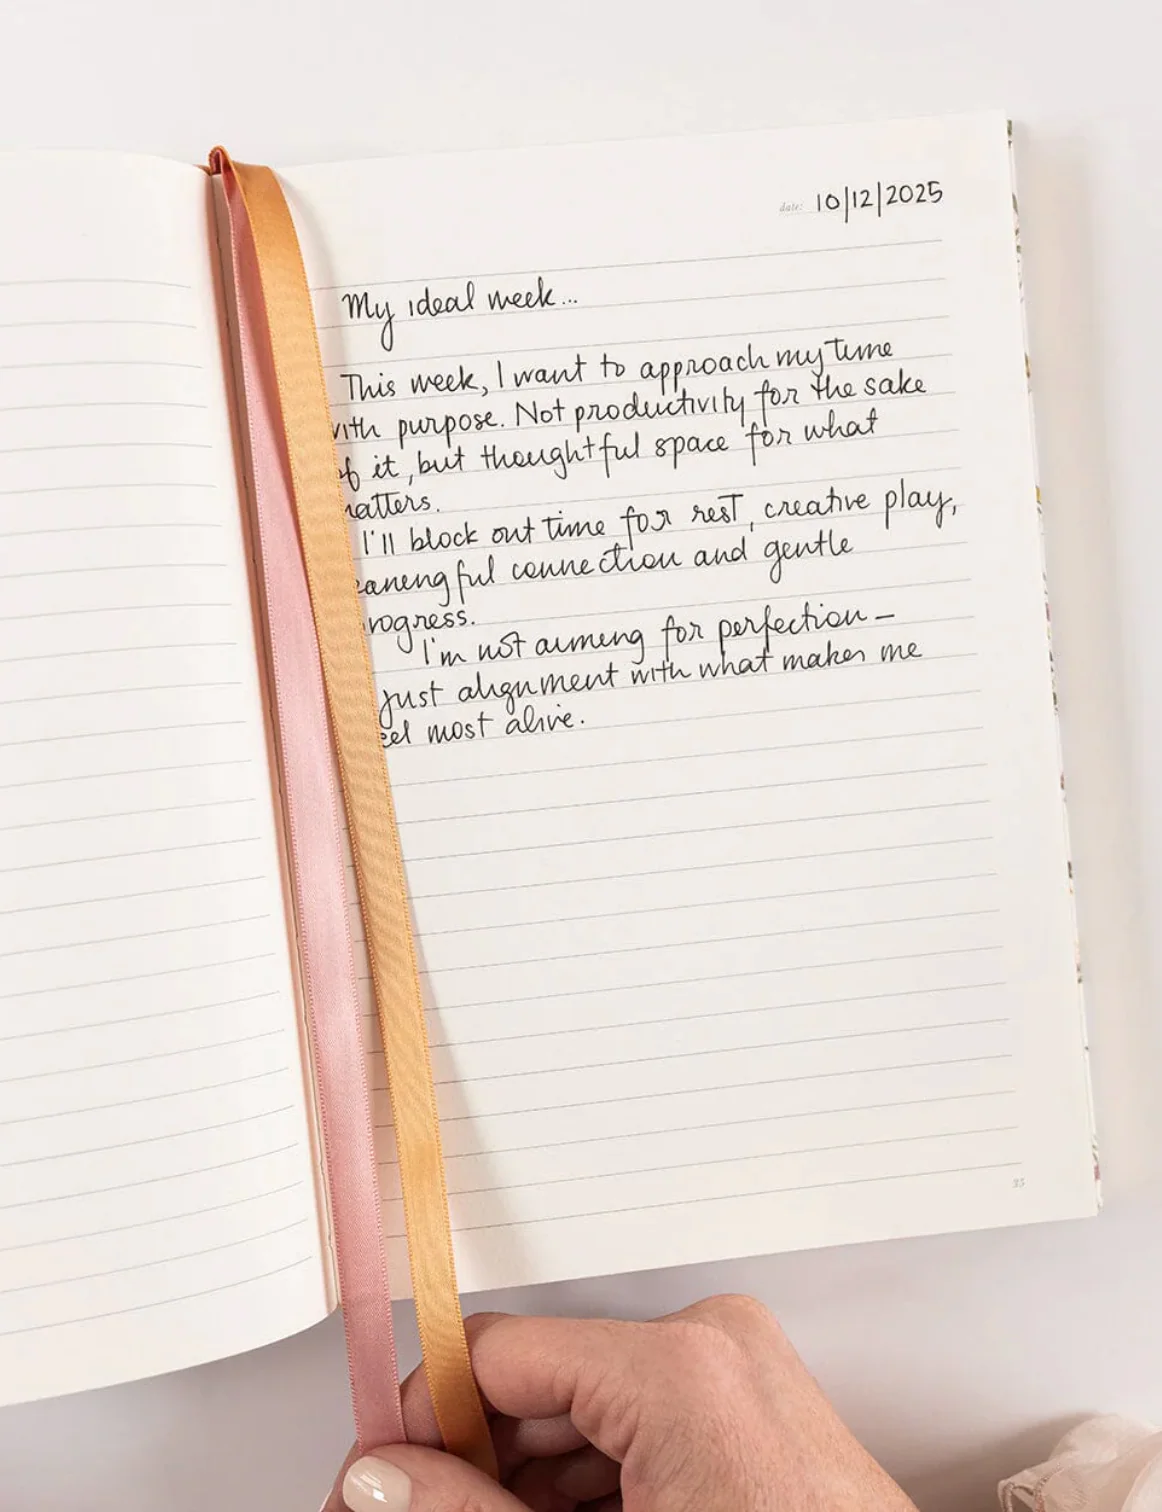 date: 10/12/2025
My ideal week...
This week, I want to approach my time
with purpose. Not productivity for the sake
of it, but thoughtful space for what
matters.
I'll block out time for rest, creative play,
meaningful connection and gentle
progress.
I'm not aiming for perfection –
just alignment with what makes me
feel most alive.
35